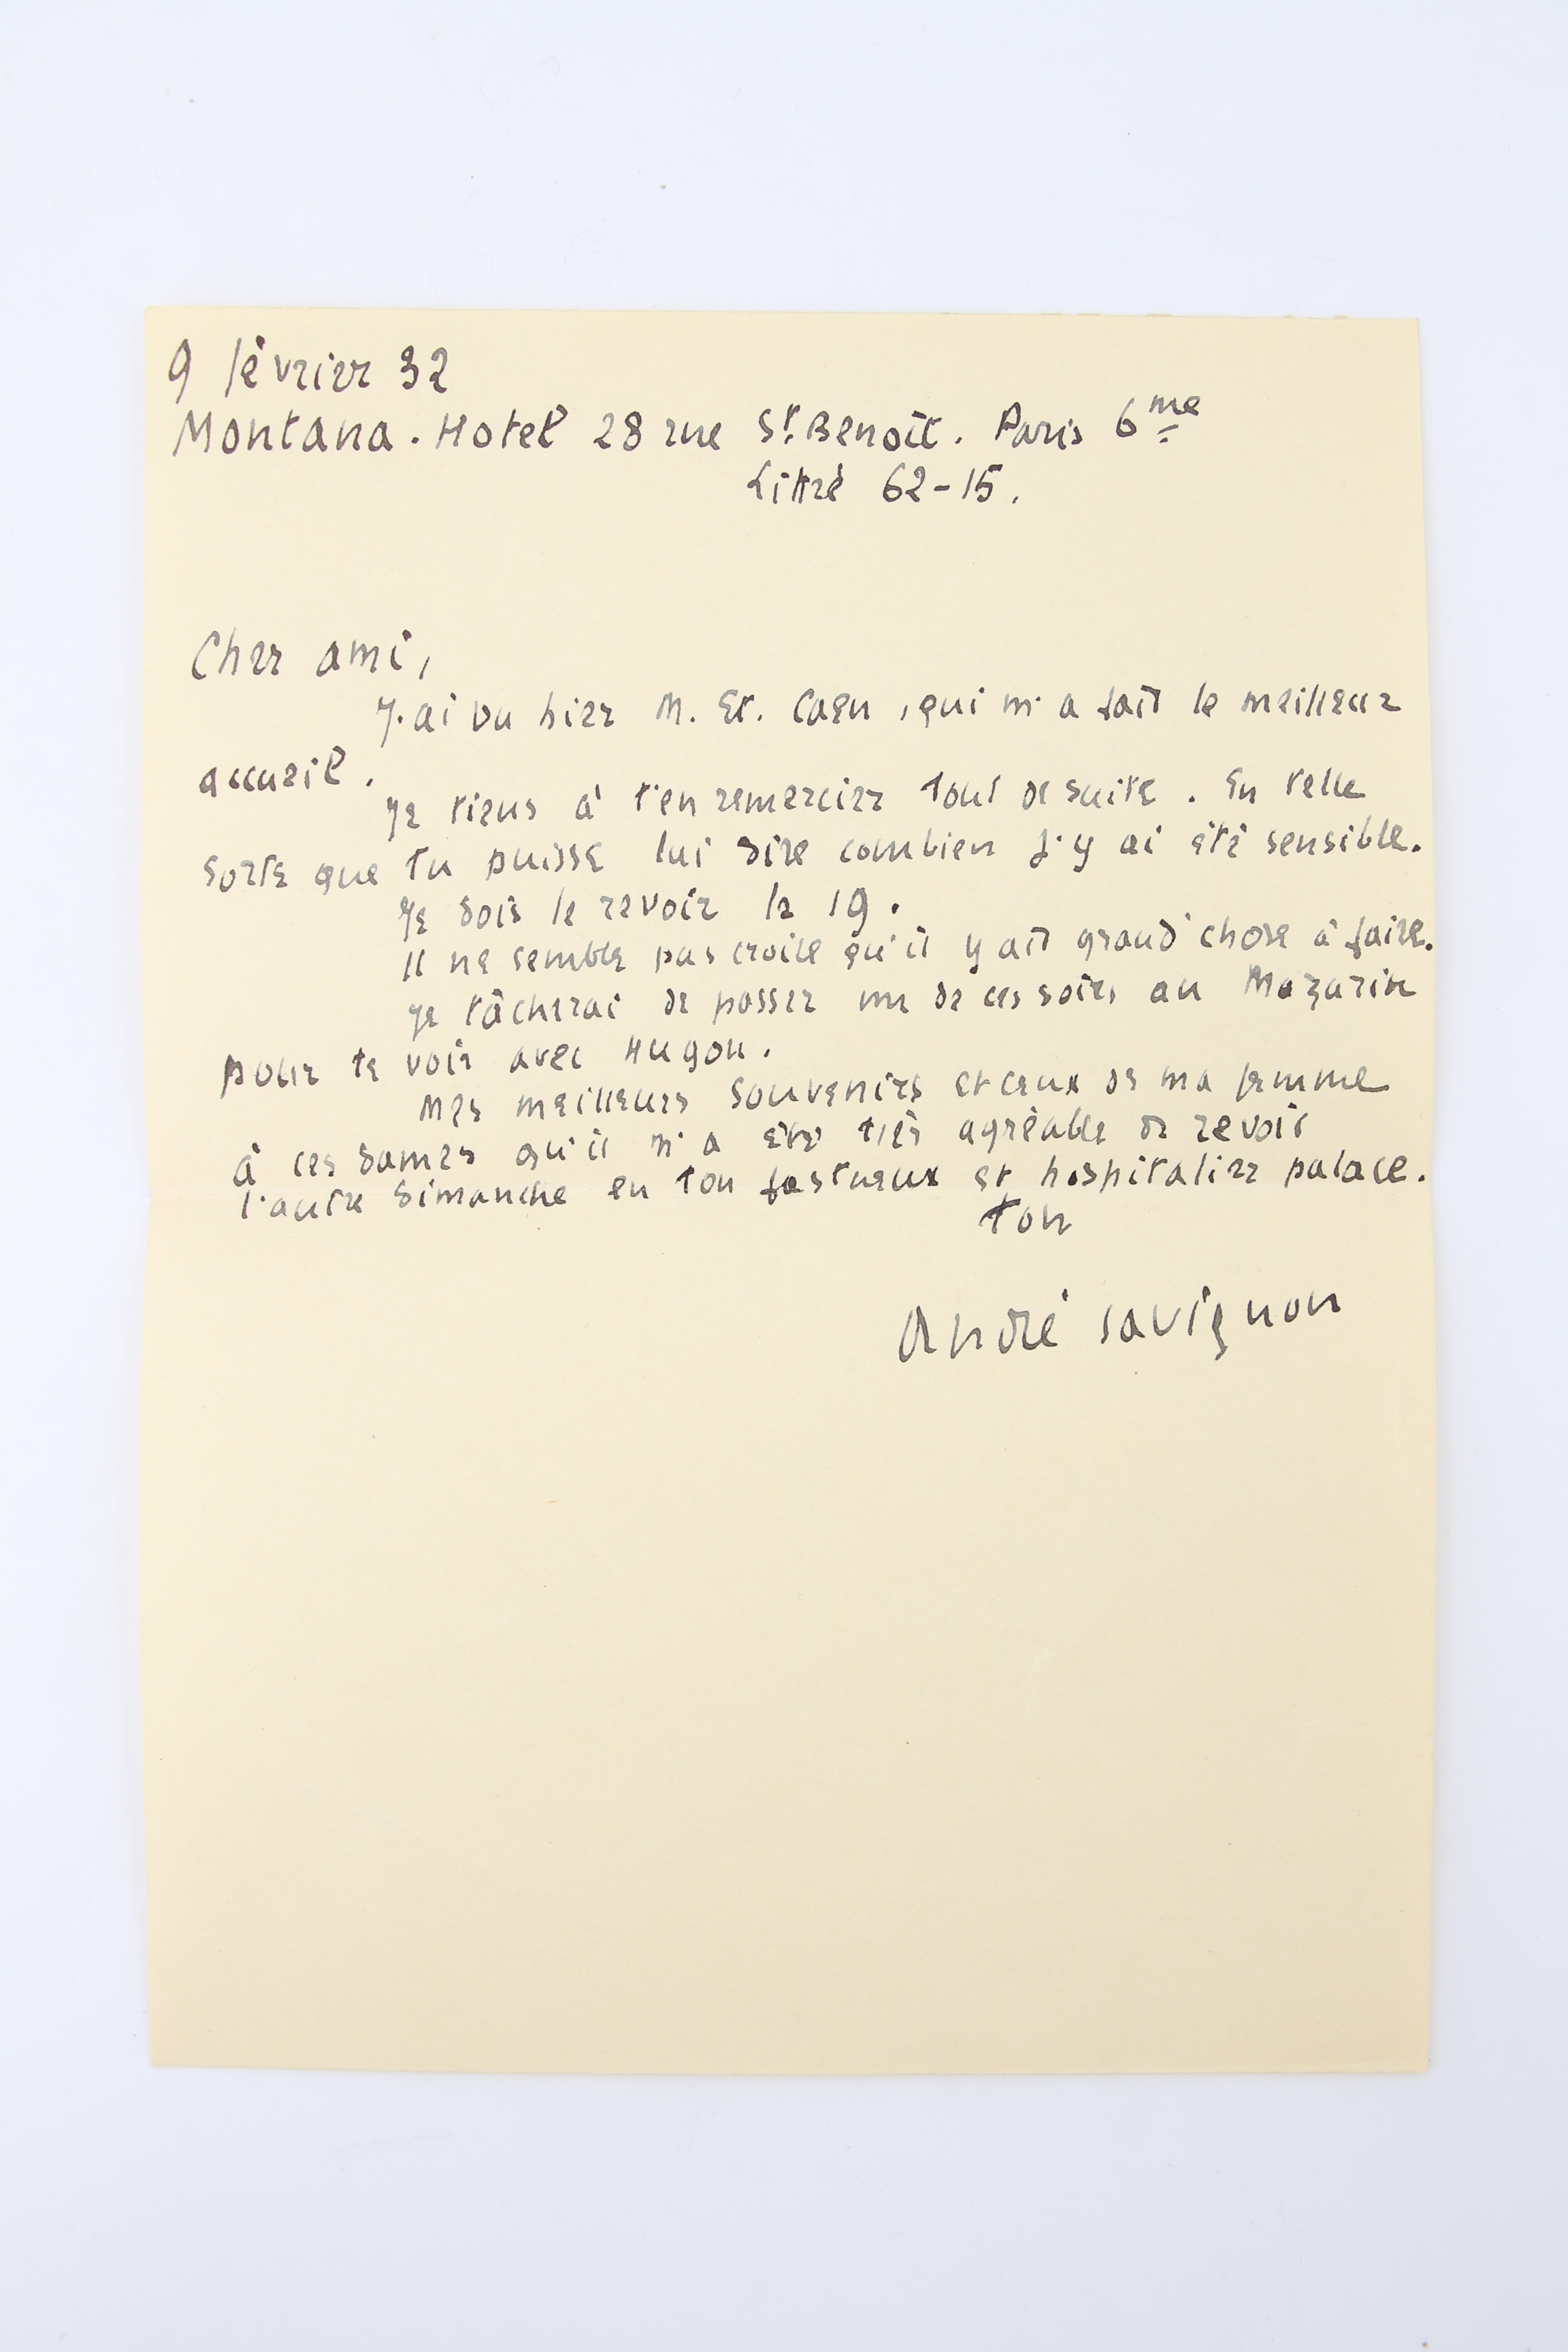 9 février 32
Montana. Hotel 28 rue St. Benoît. Paris 6me
Littré 62-15.
Cher ami,
J'ai vu hier M. Et. Caen, qui m'a fait le meilleur
accueil.
Je tiens à t'en remercier tout de suite. En telle
sorte que tu puisse lui dire combien j'y ai été sensible.
Je dois le revoir le 19.
Il ne semble pas croire qu'il y ait grand'chose à faire.
Je tâcherai de passer un de ces soirs au Mazarin
pour te voir avec Hugon.
Mes meilleurs souvenirs et ceux de ma femme
à ces dames qu'il m'a été très agréable de revoir
l'autre dimanche en ton fastueux et hospitalier palace.
Ton
André Savignon